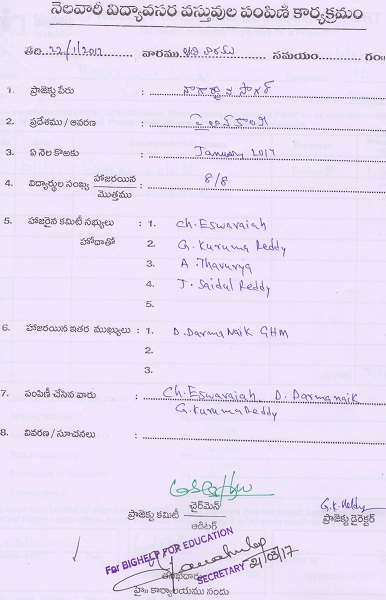 నెలవారీ విద్యావసర వస్తువుల పంపిణి కార్యక్రమం
తేది: 22/1/2017 వారము ఆదివారము సమయం గం॥
1. ప్రాజెక్టు పేరు : నాగార్జున సాగర్
2. ప్రదేశము / ఆవరణ : పైలాన్ కాలని
3. ఏ నెల కొఱకు : January 2017
4. విద్యార్థుల సంఖ్య హాజరయిన / మొత్తము : 8/8
5. హాజరైన కమిటీ సభ్యులు : 1. Ch. Eswaraiah
హోదాతో 2. G. Kuruma Reddy
3. A. Thavurya
4. J. Saidul Reddy
5.
6. హాజరయిన ఇతర ముఖ్యులు : 1. D. Darma Naik GHM
2.
3.
7. పంపిణీ చేసిన వారు : Ch. Eswaraiah D. Darmanaik
G. Kuruma Reddy
8. వివరణ / సూచనలు :
ప్రాజెక్టు కమిటీ చైర్‌మెన్ / ఆడిటర్
G.K. Reddy
ప్రాజెక్టు డైరెక్టర్
For BIGHELP FOR EDUCATION
SECRETARY 21/03/17
హై॥ కార్యాలయము నందు